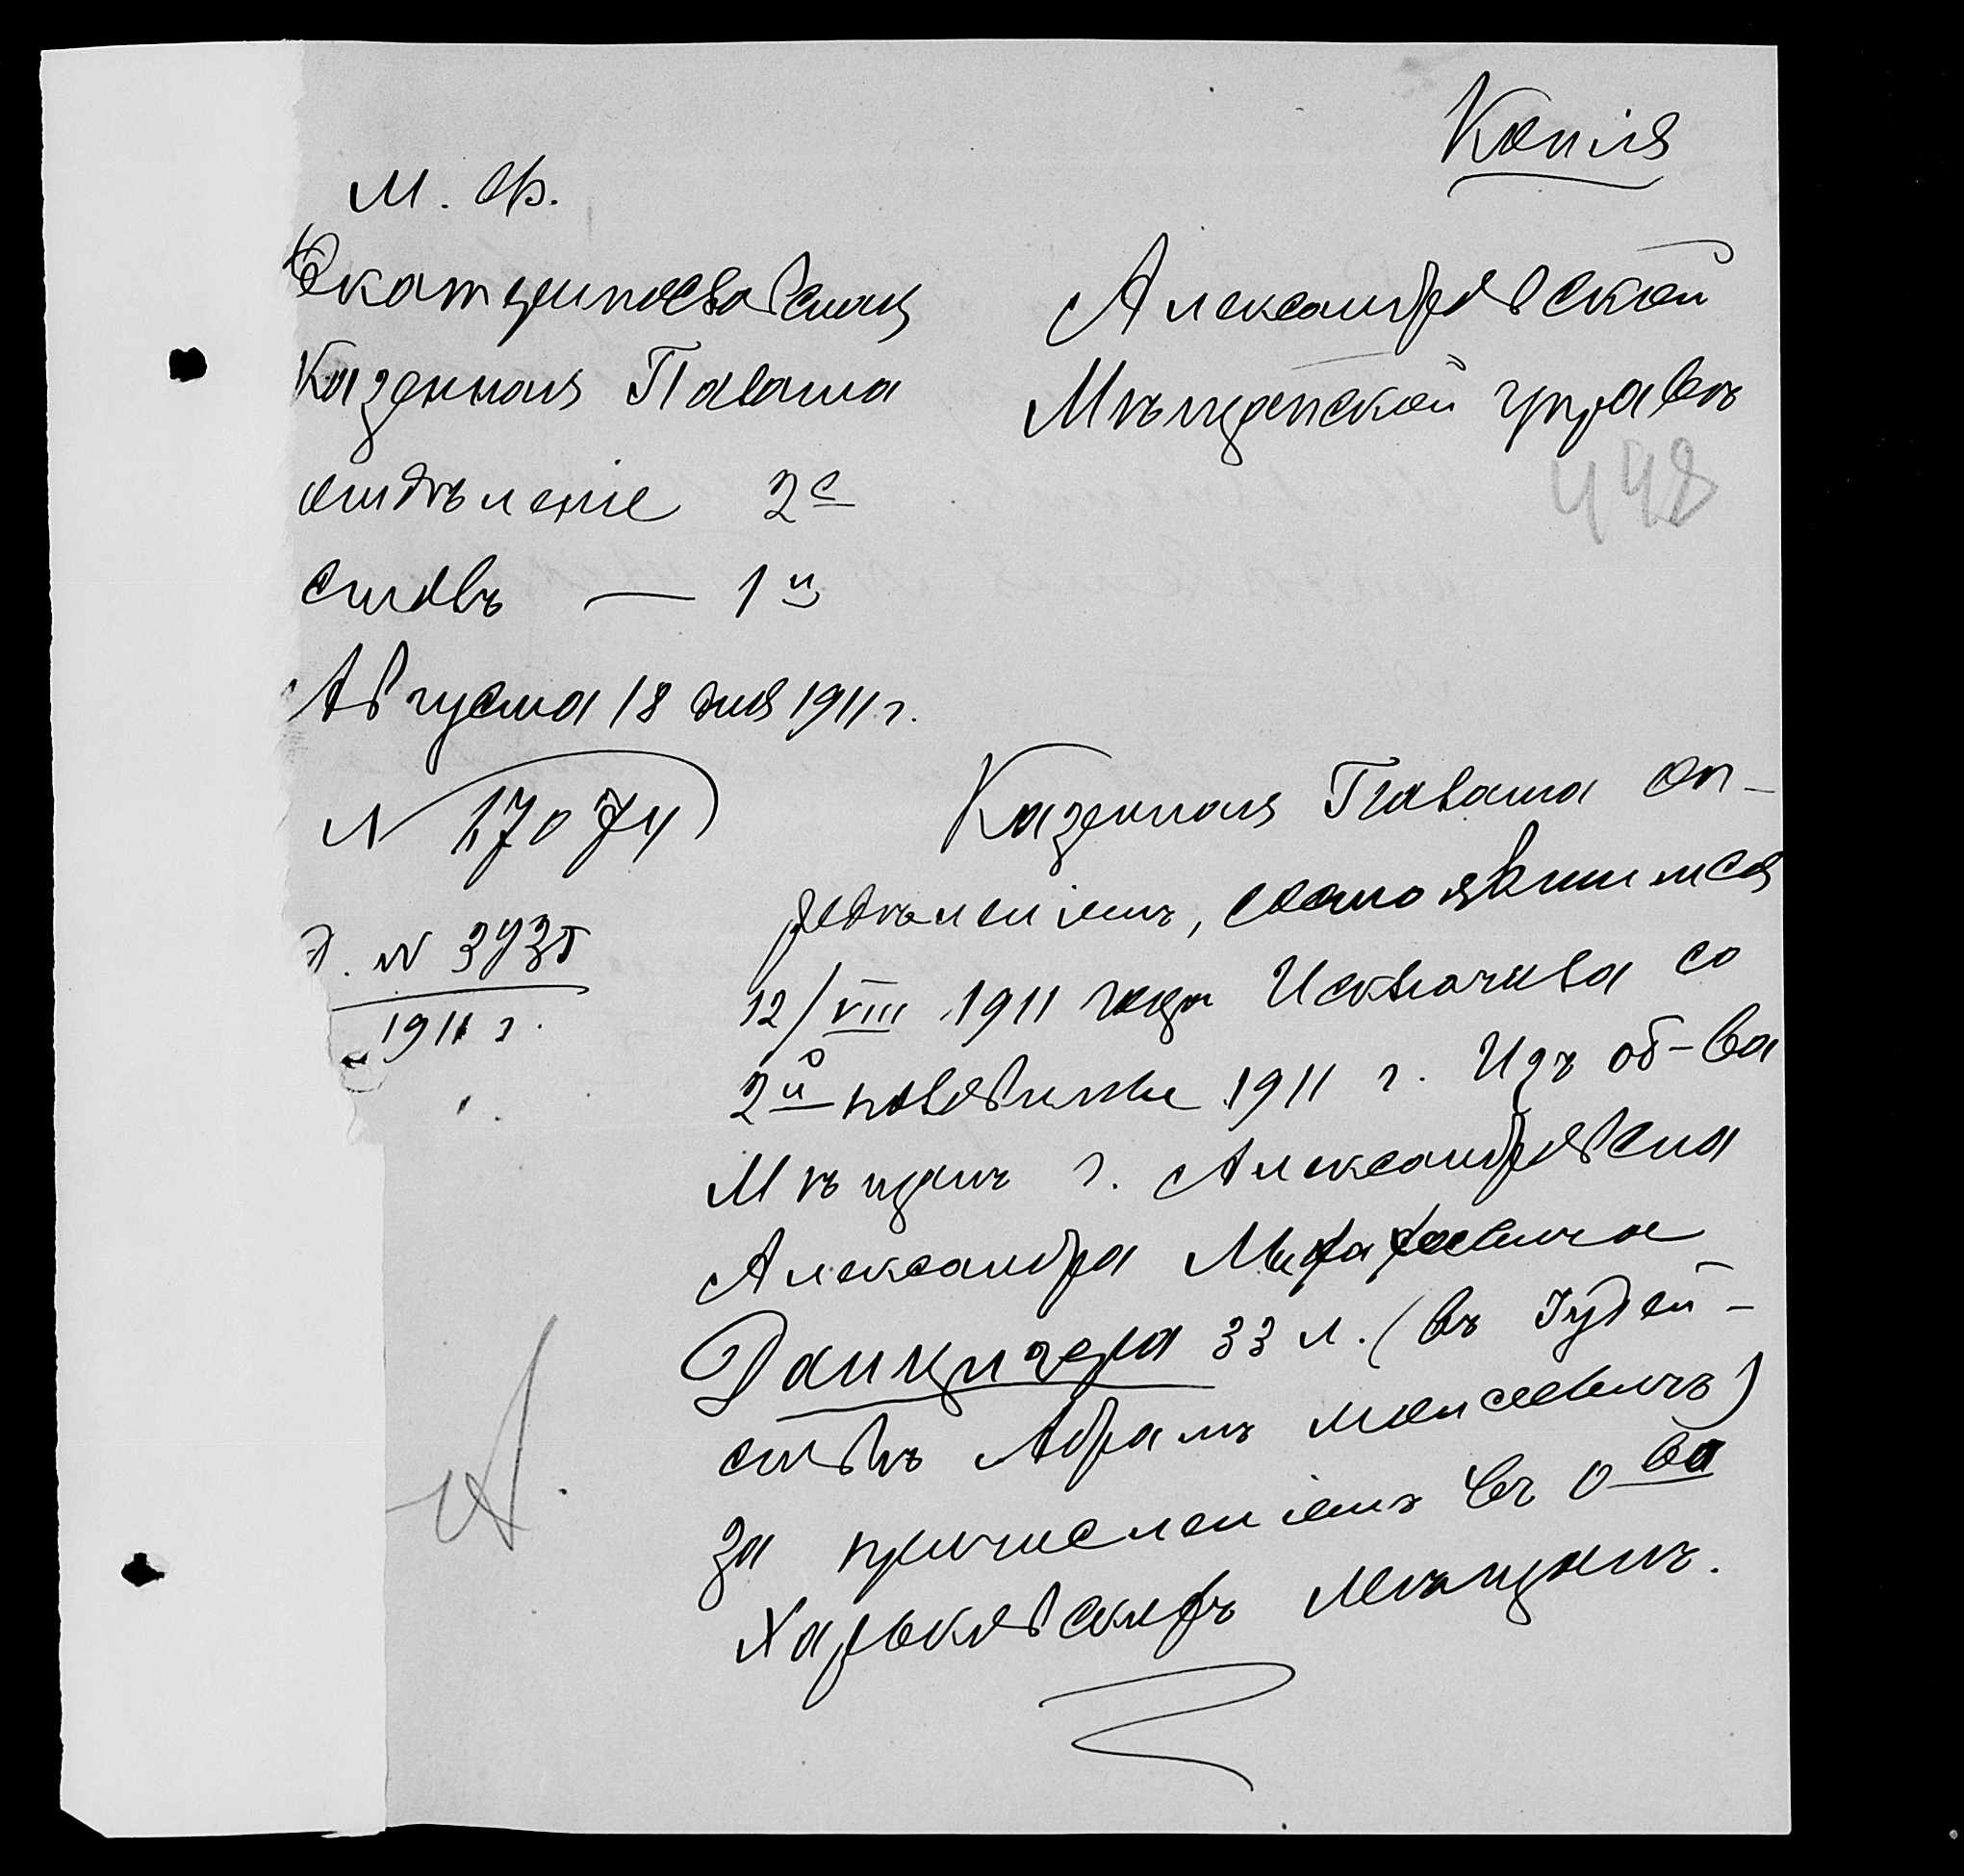 Копія
М. Ф.
Екатеринославская
Казенная Палата
отдѣленіе 2е
столъ — 1й
Августа 18 дня 1911 г.
N 17074
Д. N 3935
1911 г.
Александровской
Мѣщанской управѣ
448
Казенная Палата оп-
редѣленіемъ, состоявшимся
12/VIII 1911 года Исключила со
2й половины 1911 г. Изъ об-ва
Мѣщанъ г. Александровска
Александра Михайловича
Данцигера 33 л. (въ Іудей-
ствѣ Абрамъ Моисеевичъ)
за причисленіемъ въ о-ва
Харьковскихъ Мѣщанъ.